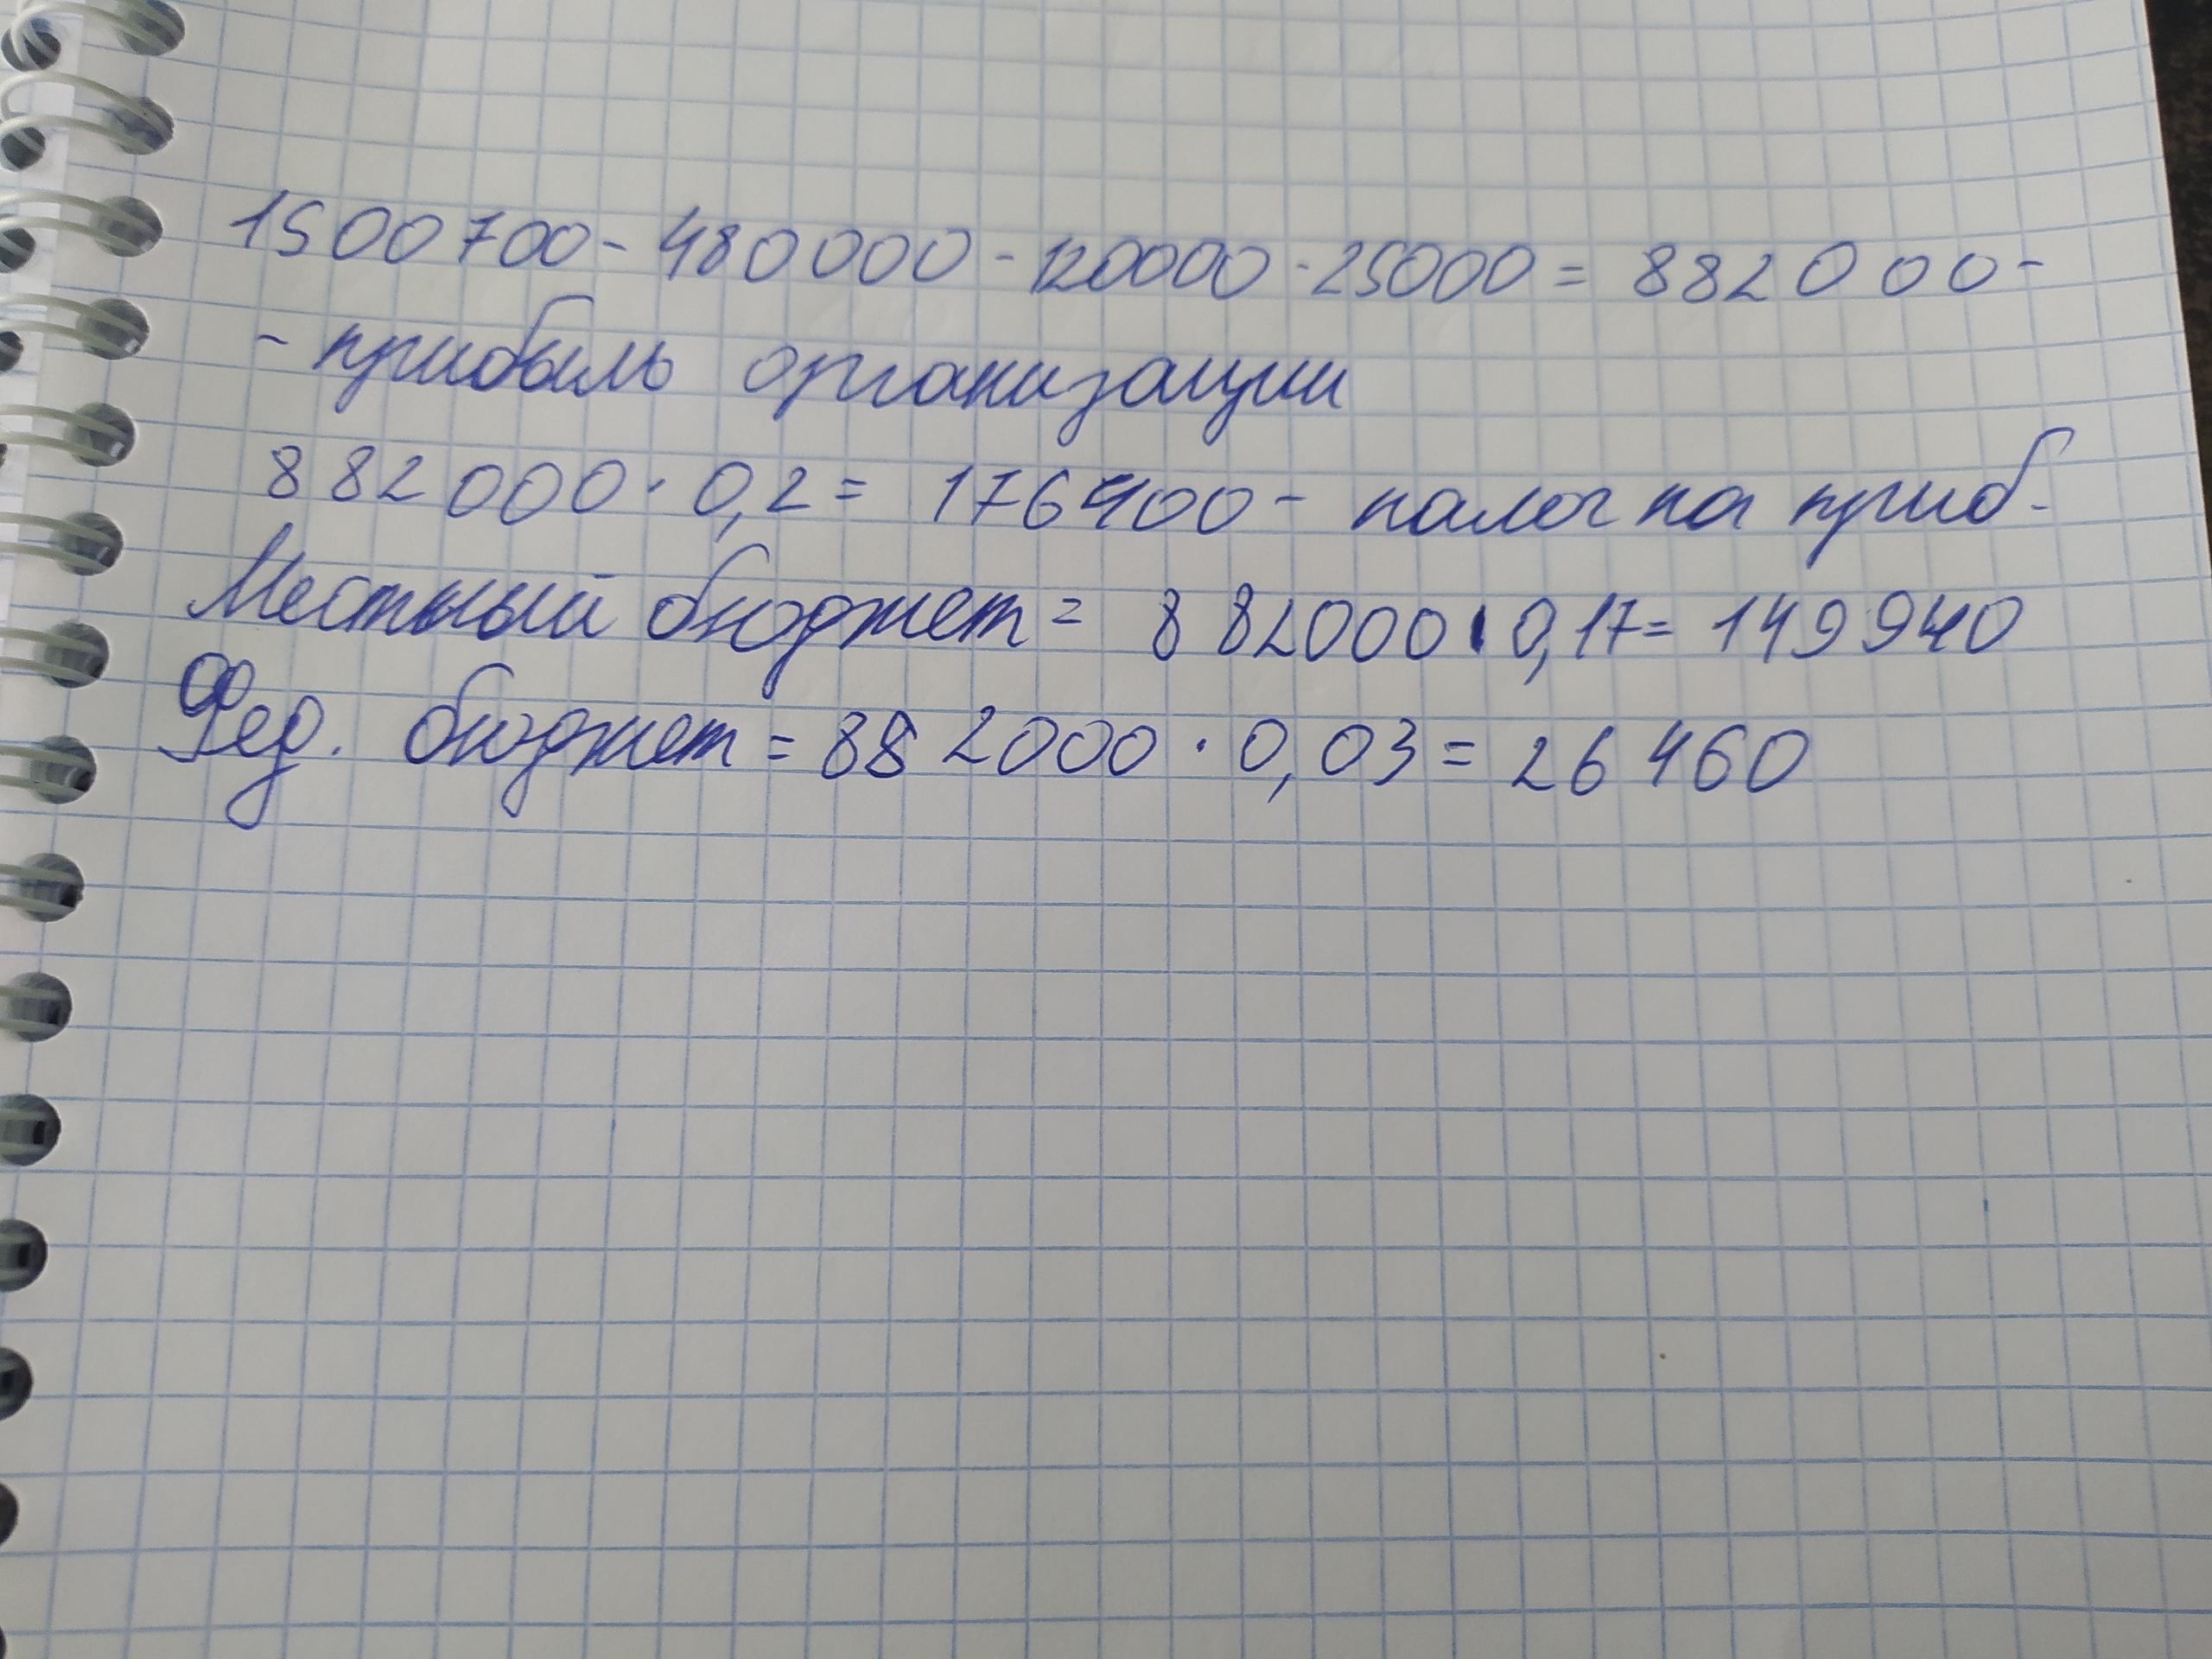 1500700 - 480000 - 120000 - 25000 = 882000 -
- прибыль организации
882000 · 0,2 = 176400 - налог на приб.
Местный бюджет = 882000 · 0,17 = 149940
Фед. бюджет = 882000 · 0,03 = 26460